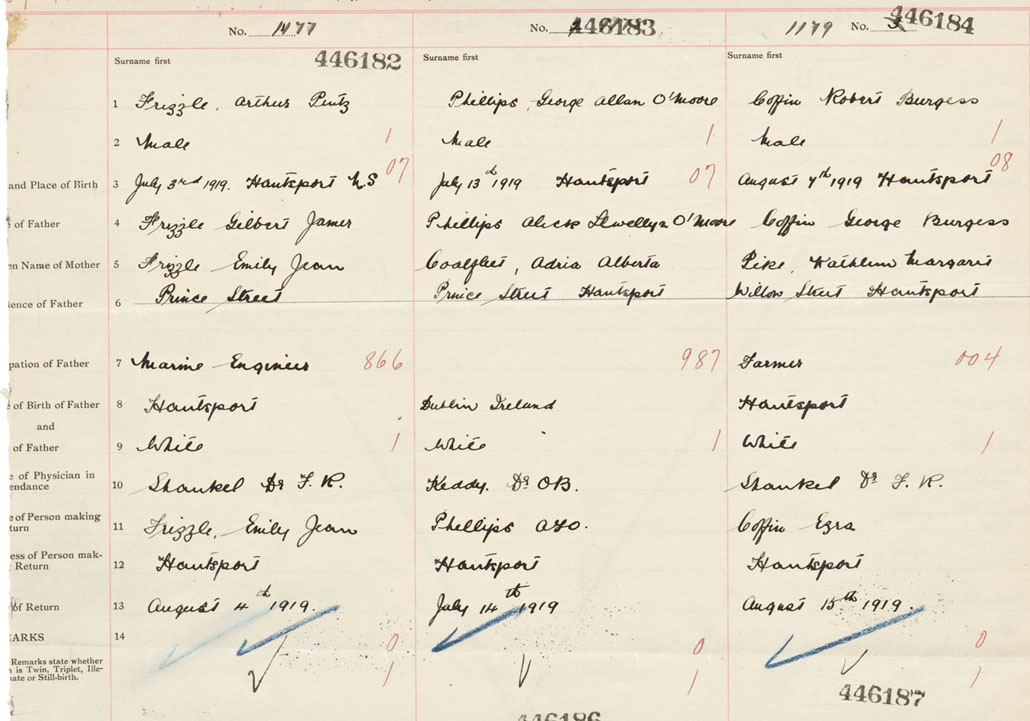 No. 1477
446182
No. 446183
1179 No. 446184
Surname first
Surname first
Surname first
1 Frizzle, Arthur Pentz
Phillips, George Allan O'Moore
Coffin Robert Burgess
2 Male 1
Male 1
Male 1
and Place of Birth
3 July 3rd 1919. Hantsport N S 07
July 13th 1919 Hantsport 07
August 7th 1919 Hantsport 08
of Father
4 Frizzle Gilbert James
Phillips Alick Llewellyn O'Moore
Coffin George Burgess
en Name of Mother
5 Frizzle Emily Jean
Coalfleet, Adria Alberta
Pike, Kathleen Margaret
ence of Father
6 Prince Street
Prince Street Hantsport
Willow Street Hantsport
pation of Father
7 Marine Engineer 866
987
Farmer 004
of Birth of Father
8 Hantsport
Dublin Ireland
Hantsport
and
of Father
9 White 1
White 1
White 1
e of Physician in
endance
10 Shankel Dr F. R.
Keddy. Dr OB.
Shankel Dr F. R.
e of Person making
turn
11 Frizzle, Emily Jean
Phillips ALO.
Coffin Ezra
ess of Person mak-
Return
12 Hantsport
Hantsport
Hantsport
of Return
13 August 4th 1919.
July 14th 1919
August 15th 1919.
ARKS
14
0
0
0
Remarks state whether
is Twin, Triplet, Ille-
ate or Still-birth.
1
1
1
446187
446186